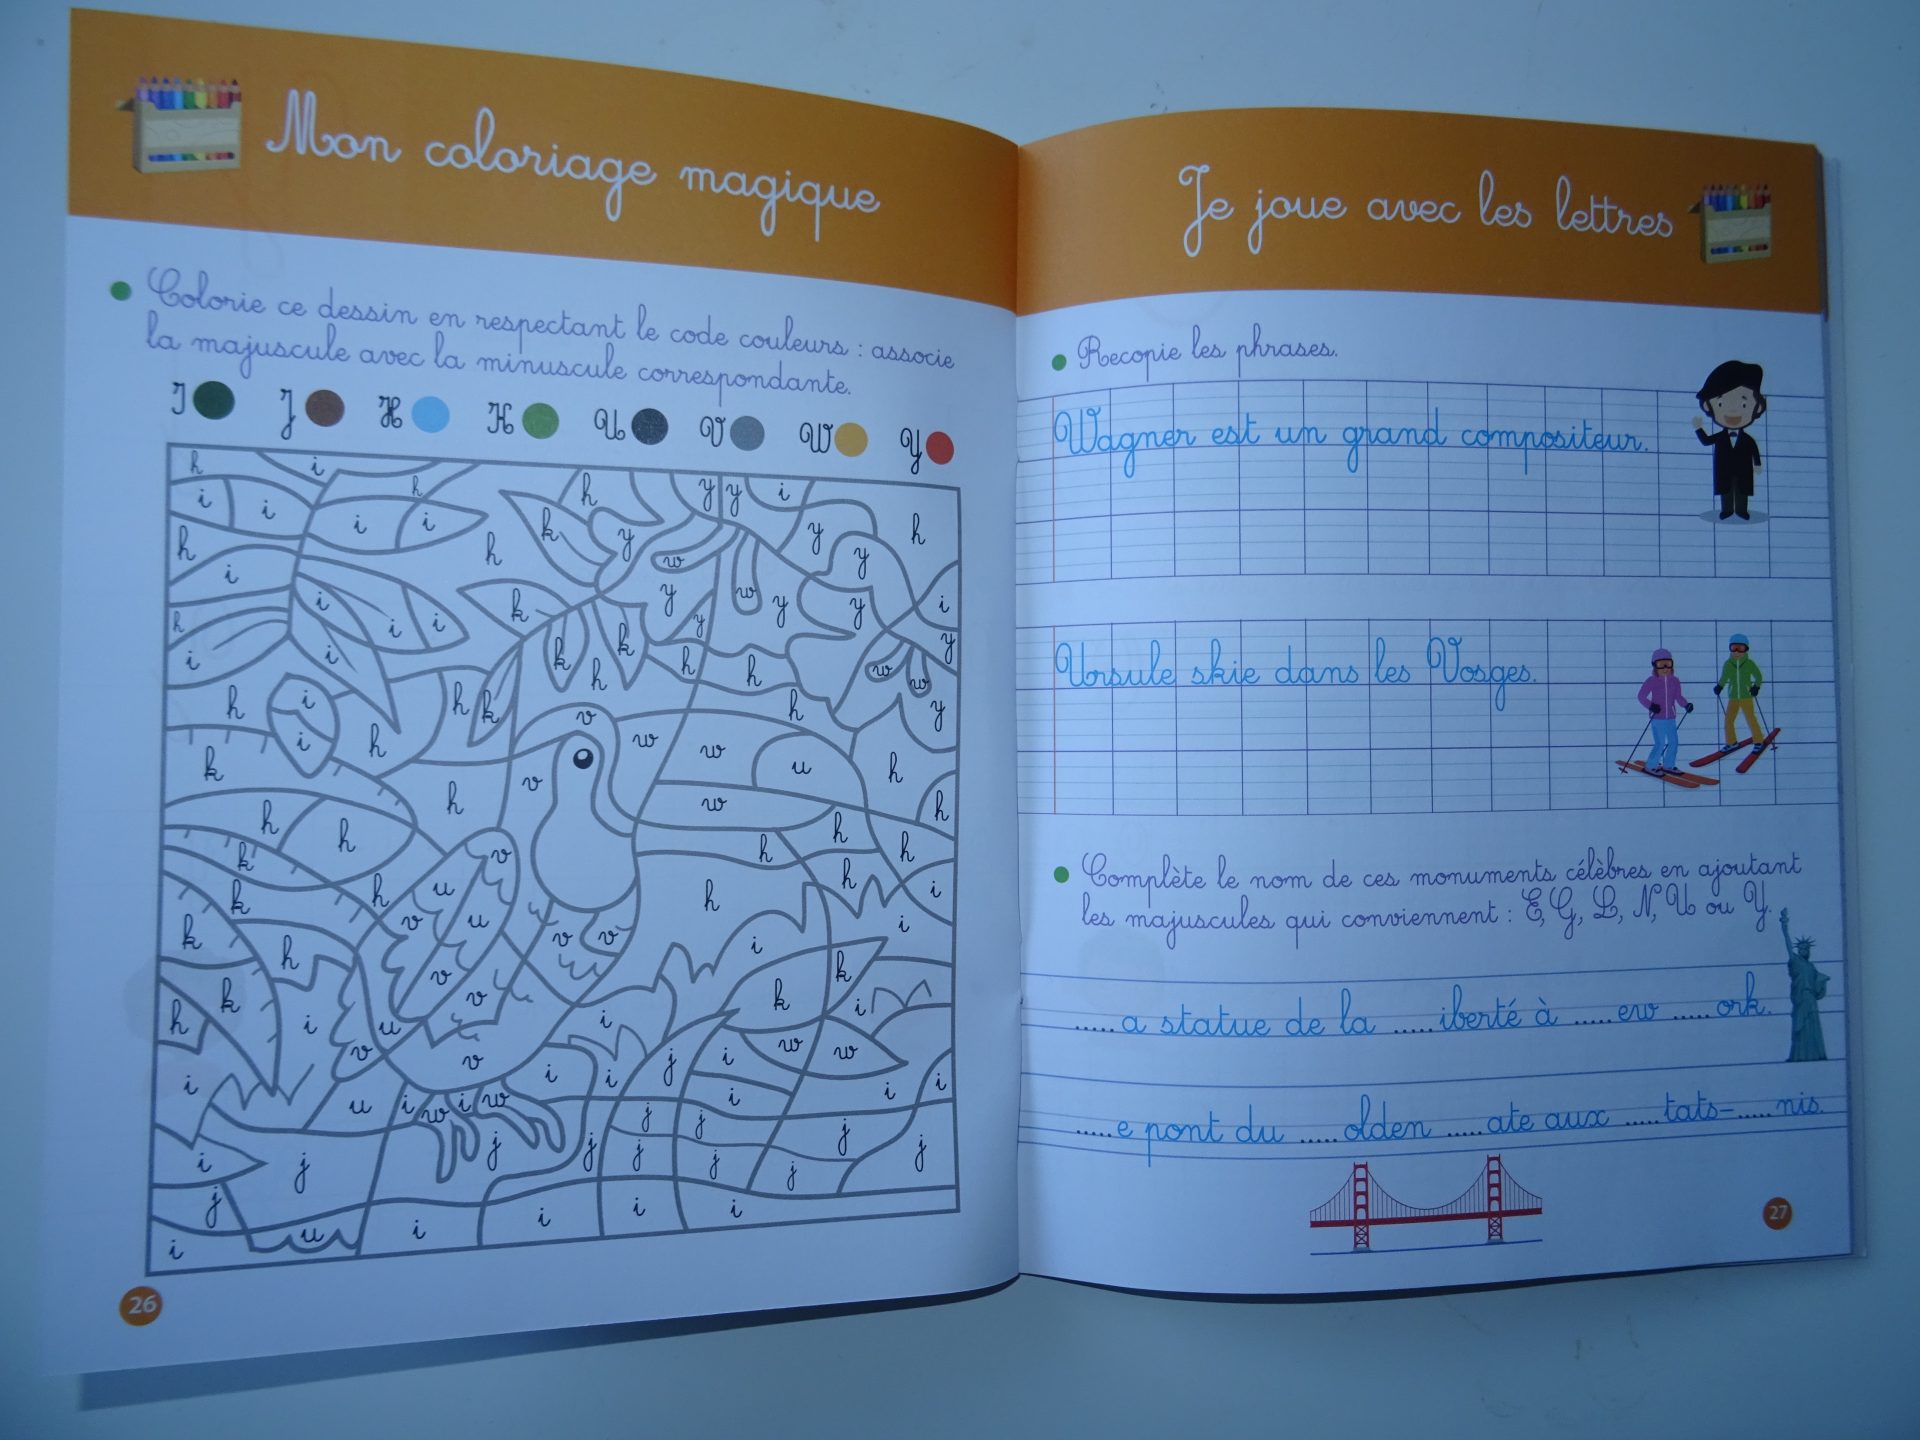 Mon coloriage magique
Colorie ce dessin en respectant le code couleurs : associe
la majuscule avec la minuscule correspondante.
I J H K U V W Y
h i h y y i
i i i i h k h y y h
h h w y
i k y w y y i
h i i i k k y y
i i h h h w w
h i h k v h y
k i h v w w u h
h h h w h h
k k h v u v u h h h i
k h v v v i i
k h i v u v i k k i
h v v i j i w w
i u i w i w i i j j i i j
i j j j j j j j
j u i i i i i
i
26
Je joue avec les lettres
Recopie les phrases.
Wagner est un grand compositeur.
Ursule skie dans les Vosges.
Complète le nom de ces monuments célèbres en ajoutant
les majuscules qui conviennent : E, G, L, N, U ou Y.
.....a statue de la .....iberté à .....ew .....ork.
.....e pont du .....olden .....ate aux .....tats-.....nis.
27